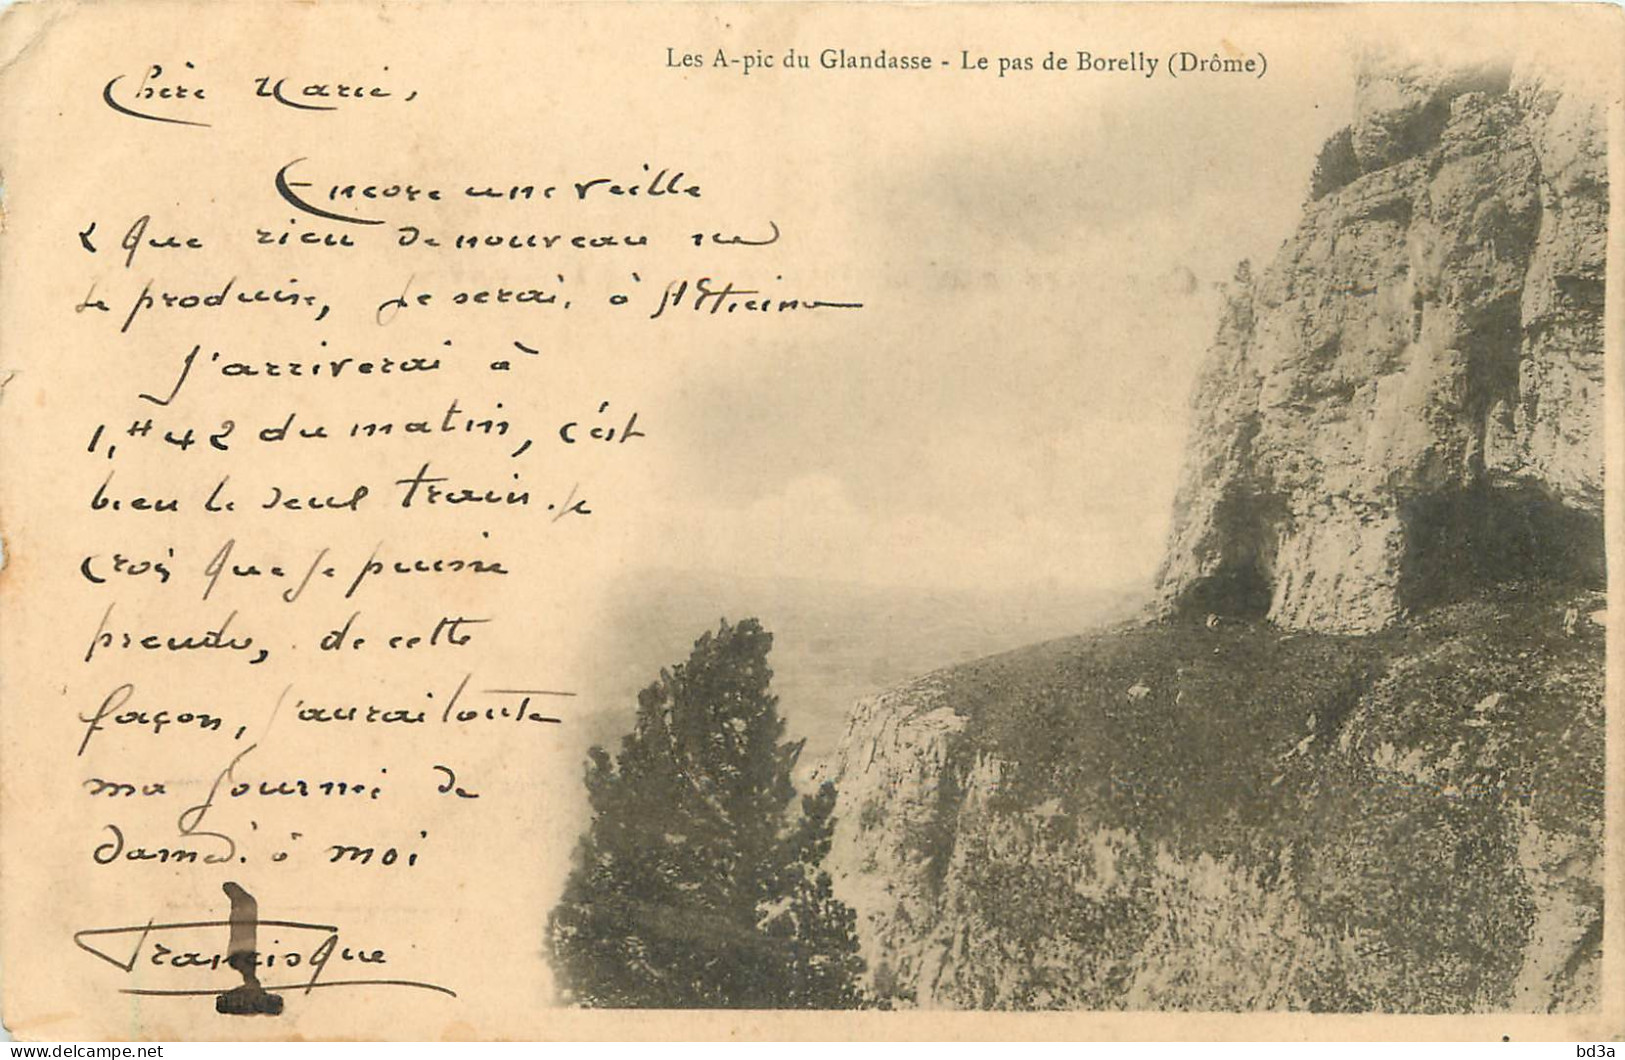 Les A-pic du Glandasse - Le pas de Borelly (Drôme)
Chère Marie,
Encore une veille
& que rien de nouveau ne
se produise, je serai à St Etienne
J'arriverai à
1,H 42 du matin, c'est
bien le seul train. Je
crois que je puisse
prendre, de cette
façon, j'aurai toute
ma journée de
Samedi à moi
Francisque
bd3a